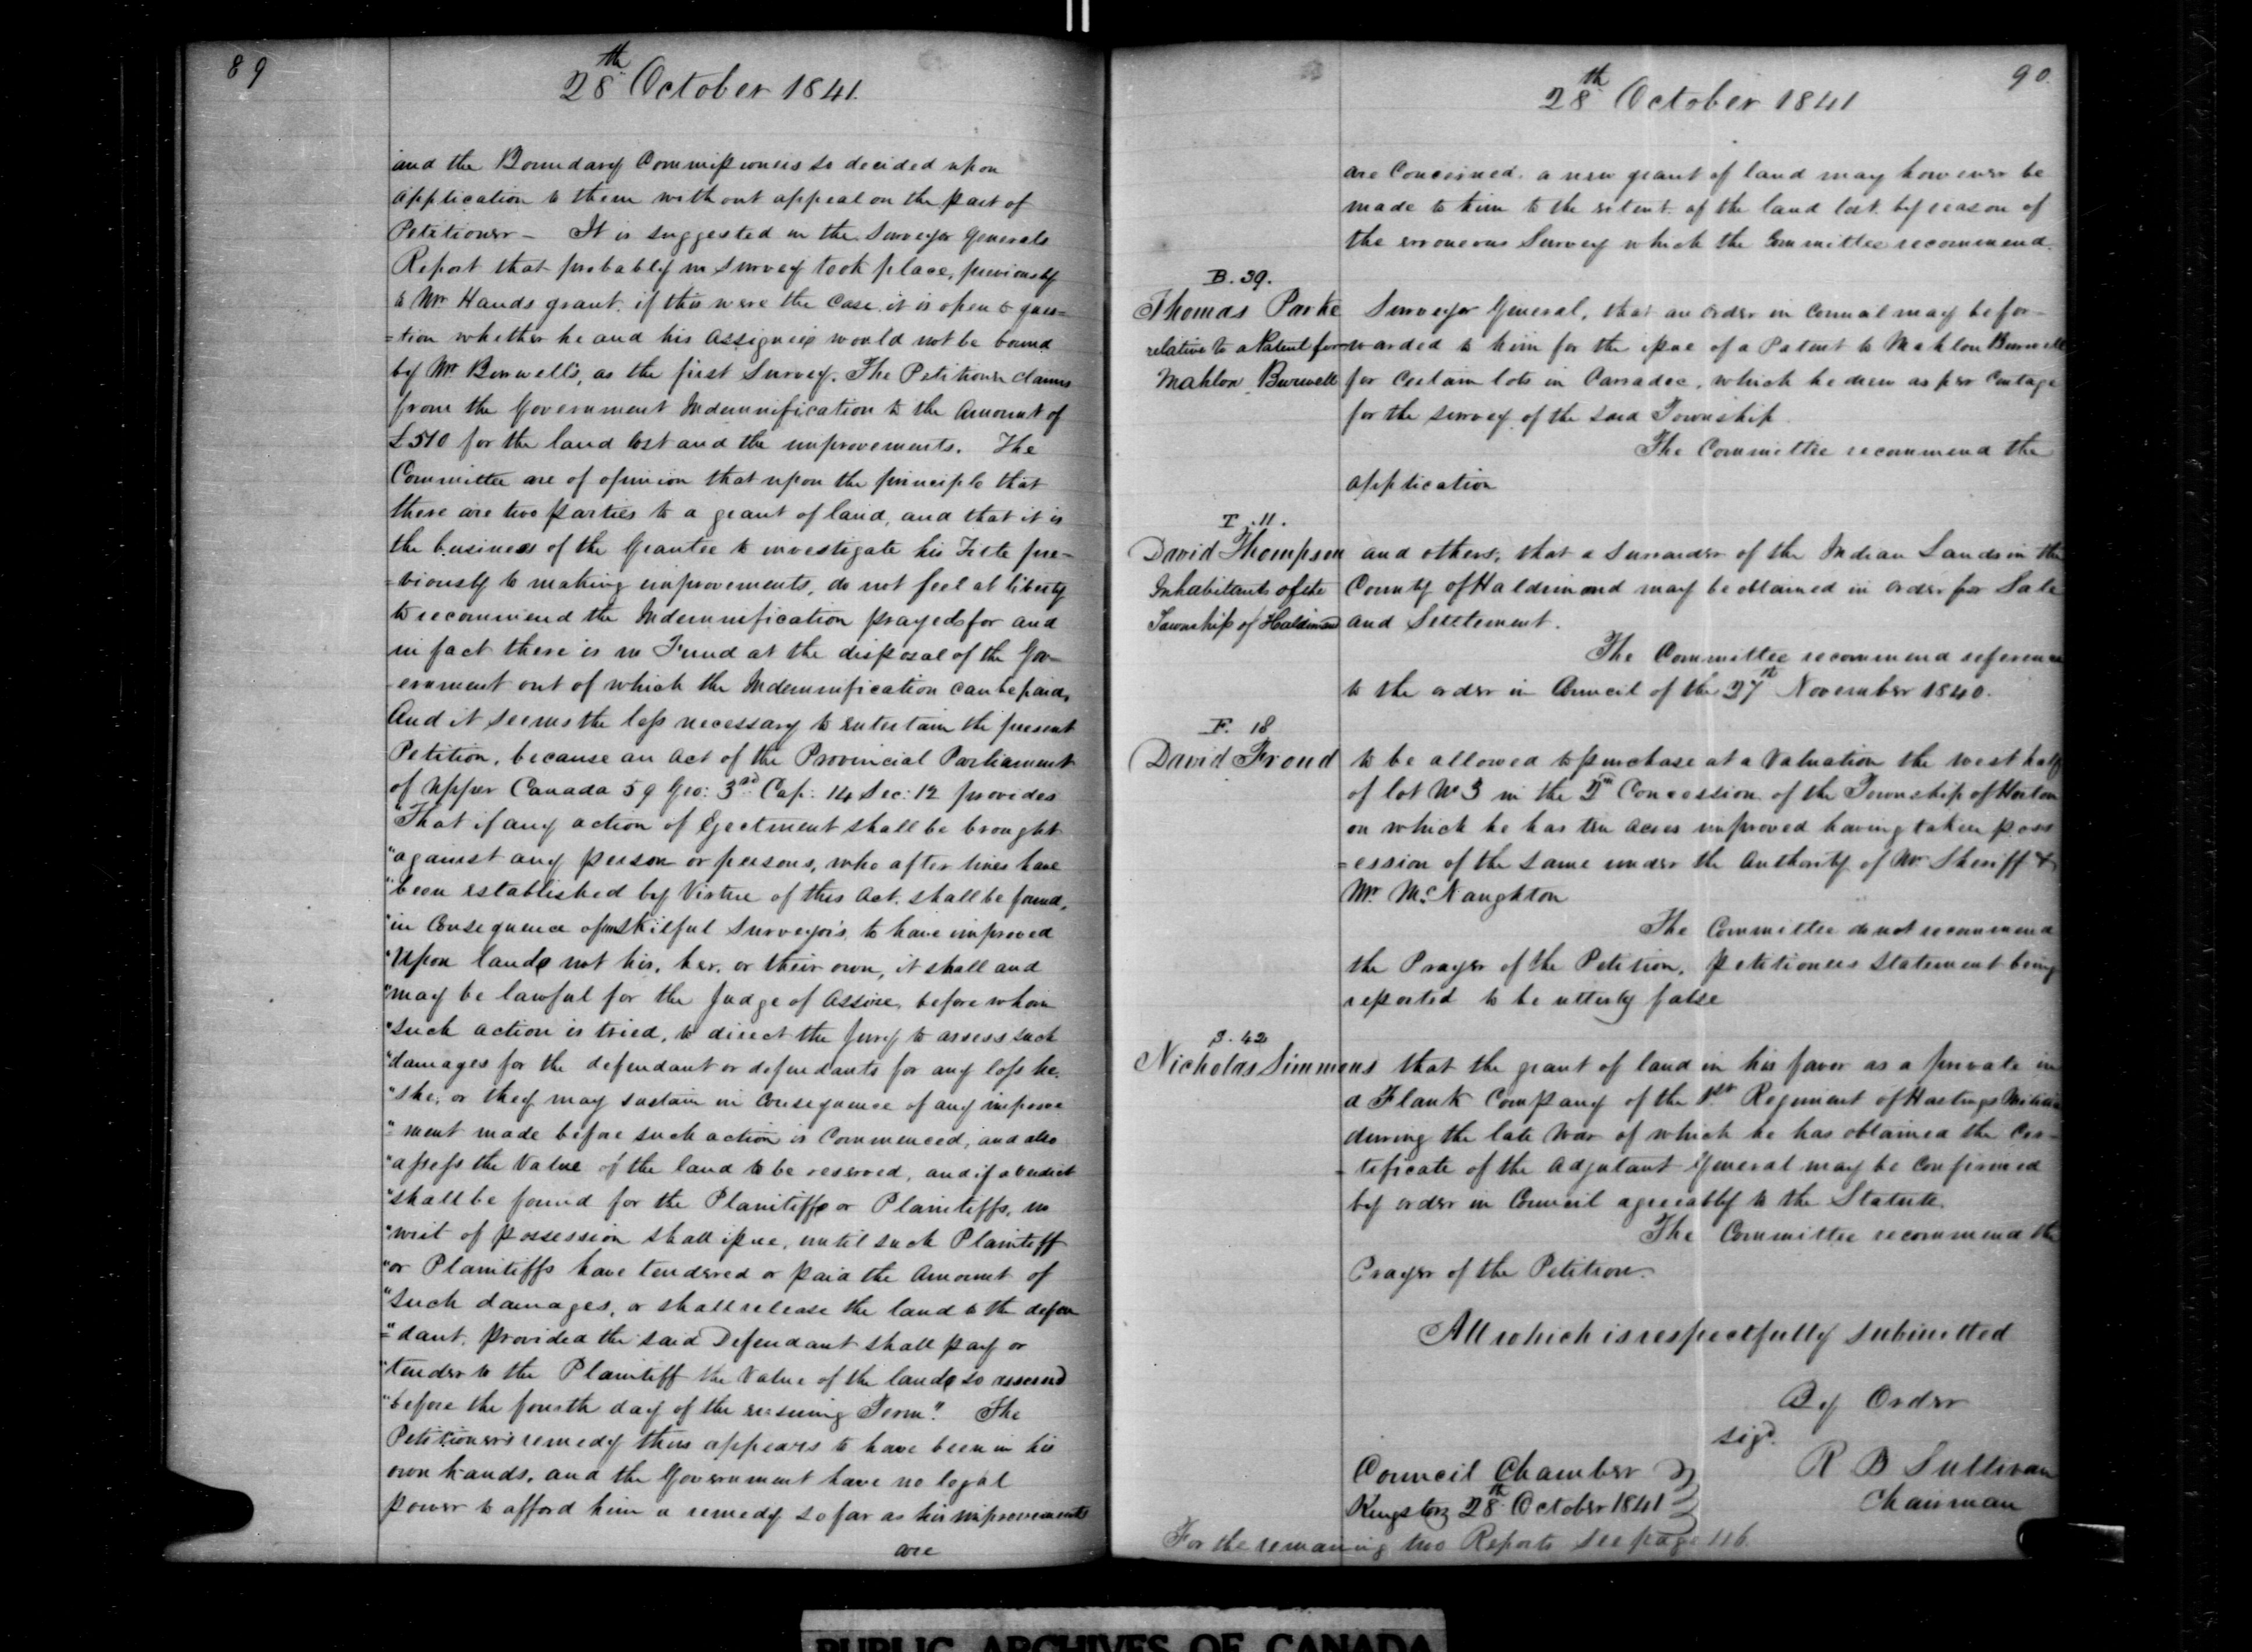 89
28th October 1841.
and the Boundary Commissioners so decided upon
application to them without appeal on the part of
Petitioner — It is suggested in the Surveyor Generals
Report that probably no survey took place, previously
to Mr Hands grant. if this were the case it is open to ques=
=tion whether he and his assignees would not be bound
by Mr Burwell's, as the first Survey. The Petitioner claims
from the Government Indemnification to the amount of
£510 for the land lost and the improvements. The
Committee are of opinion that upon the principle that
there are two parties to a grant of land, and that it is
the business of the Grantee to investigate his Title pre-
=viously to making improvements, do not feel at liberty
to recommend the Indemnification prayed for and
in fact there is no Fund at the disposal of the Gov-
-ernment out of which the Indemnification can be paid,
And it seems the less necessary to entertain the present
Petition, because an act of the Provincial Parliament
of Upper Canada 59 Geo: 3rd Cap: 14 Sec: 12 provides
"That if any action of Ejectment shall be brought
"against any person or persons, who after lines have
"been established by Virtue of this Act, shall be found,
"in Consequence of unskilful Surveyors, to have improved
"Upon lands not his, her, or their own, it shall and
"may be lawful for the Judge of Assize, before whom
"such action is tried, to direct the Jury to assess such
"damages for the defendant or defendants for any loss he,
"she, or they may sustain in Consequence of any improve
"=ment made before such action is Commenced, and also
"assess the Value of the land to be reserved, and if a Verdict
"shall be found for the Plaintiff or Plaintiffs, no
"writ of possession shall issue, until such Plaintiff
"or Plaintiffs have tendered or paid the Amount of
"such damages, or shall release the land to the defen
"=dant, provided the said Defendant shall pay or
"tender to the Plaintiff the Value of the lands so assessed
"before the fourth day of the ensuing Term". The
Petitioner's remedy thus appears to have been in his
own hands, and the Government have no legal
power to afford him a remedy so far as his improvements
are
90.
28th October 1841
are Concerned. a new grant of land may however be
made to him to the extent of the land lost by reason of
the erroneous Survey which the Committee recommend.
B. 39.
Thomas Parke Surveyor General, that an order in Council may be for-
relative to a Patent for warded to him for the issue of a Patent to Mahlon Burwell
Mahlon Burwell for Certain lots in Carradoc, which he drew as per Centage
for the survey of the said Township
The Committee recommend the
application
T. 11.
David Thompson and others, that a Surrander of the Indian Lands in the
Inhabitants of the County of Haldimand may be obtained in order for Sale
Township of Haldimand and Settlement.
The Committee recommend reference
to the order in Council of the 27th November 1840.
F. 18
David Froud to be allowed to purchase at a Valuation the west half
of lot No 3 in the 2nd Concession of the Township of Horton
on which he has ten acres improved having taken poss
=ession of the same under the Authority of Mr Sheriff &
Mr McNaughton
The Committee do not recommend
the Prayer of the Petition, petitioners statement being
reported to be utterly false
S. 42
Nicholas Simmons that the grant of land in his favor as a private in
a Flank Company of the 1st Regiment of Hastings Militia
during the late War of which he has obtained the Cer-
-tificate of the Adjutant General may be Confirmed
by order in Council agreeably to the Statute.
The Committee recommend the
Prayer of the Petition.
All which is respectfully submitted
By Order
sigd.
R B Sullivan
Chairman
Council Chamber
Kingston 28th October 1841
For the remaining two Reports see page 116.
PUBLIC ARCHIVES OF CANADA